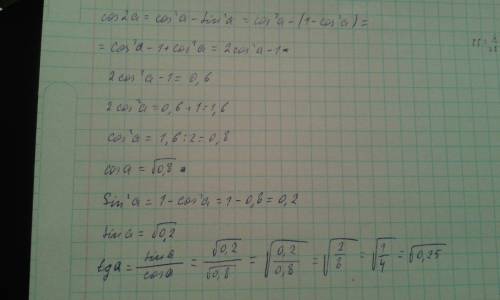 cos2a = cos²a - sin²a = cos²a - (1 - cos²a) =
= cos²a - 1 + cos²a = 2cos²a - 1
2cos²a - 1 = 0,6
2cos²a = 0,6 + 1 = 1,6
cos²a = 1,6 : 2 = 0,8
cosa = √0,8
Sin²a = 1 - cos²a = 1 - 0,8 = 0,2
sina = √0,2
tga = sina/cosa = √0,2/√0,8 = √(0,2/0,8) = √(2/8) = √(1/4) = √0,25